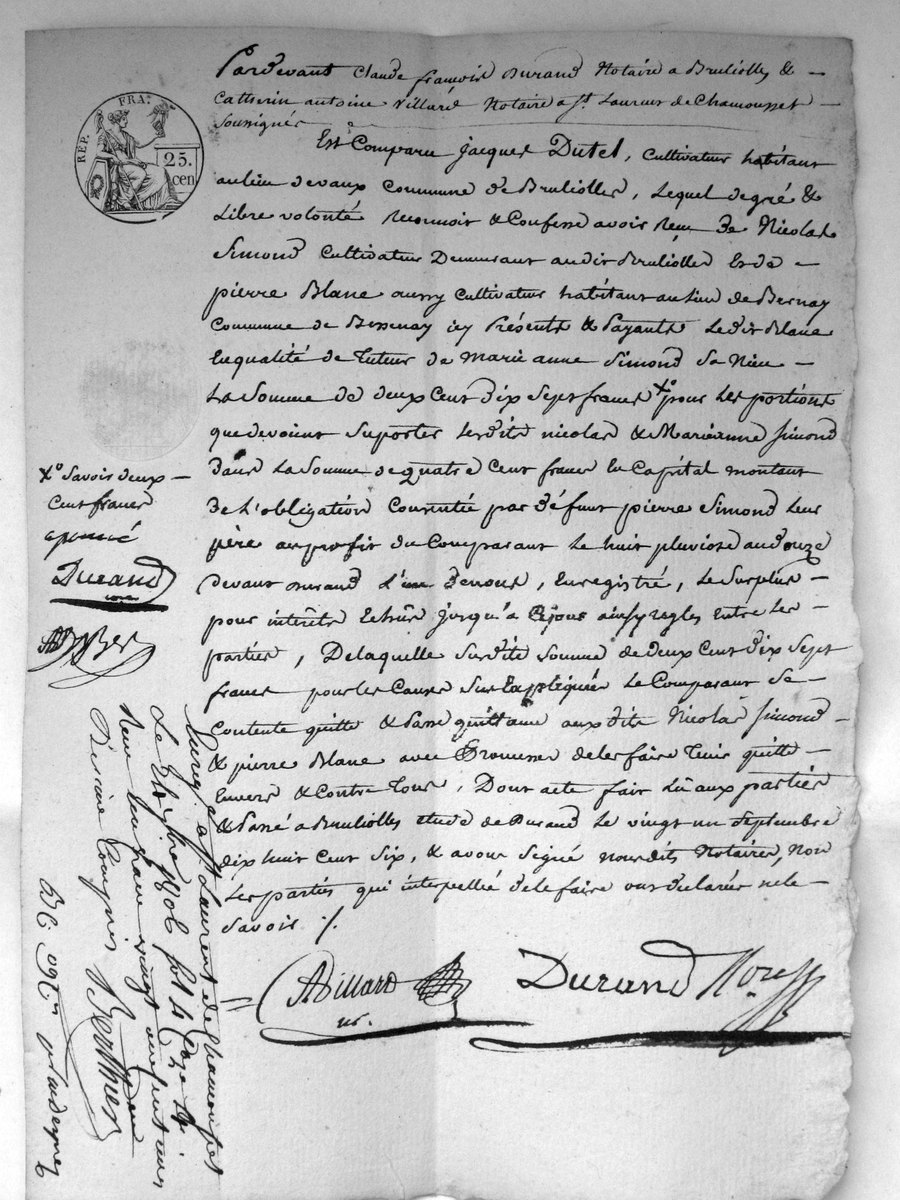 REP. FRA.
25.
cen
Pardevant Claude françois Durand Notaire a Bruliolles &
Catherin antoine Villard Notaire a St. Laurent de Chamousset
Soussignés
Est Comparu Jacques Dutel, cultivateur habitant
au lieu devaux Commune de Bruliolles, Lequel de gré &
Libre volonté reconnoit & Confesse avoir reçu de Nicolas
Simond Cultivateur Demeurant audit Bruliolles & de
pierre Blanc aussy cultivateur habitant au lieu de Bernay
Commune de Bessenay icy Présents & Payants Ledit Blanc
En qualité de Tuteur de Marie anne Simond Sa Niece
La Somme de deux Cent dix Sept francs Xo pour Les portions
que devoient Suporter Lesdits nicolas & Marieanne Simond
dans La Somme de quatre Cent francs En Capital montant
de L'obligation Consentie par défunt pierre Simond Leur
père au profit du Comparant Le huit pluviose an douze
devant Durand L'un de nous, Enregistré, Le Surplus
pour intérêts Echus jusqu'a Cejour ainsy regles entre Les
parties, De laquelle Susdite Somme de deux Cent dix Sept
francs pour les Causes Sus Expliquées Le Comparant Se
Contente quitte & Passe quittance auxdits Nicolas Simond
& pierre Blanc avec Promesse de les faire Tenir quitte
Envers & Contre Tous, Dont acte fait Lu aux parties
& Passé a Bruliolles etude de Durand Le vingt un Septembre
dix huit Cent Six, & avons Signé nousdits Notaires, Non
Les parties qui interpellé de le faire ont declarés ne le
Savoir ./.
Xo Savoir deux
Cent francs
aprouvé
Durand
AVillard
Durand Nore
Enreg. a St Laurent de Chamousset
Le
Reçu
Berthier